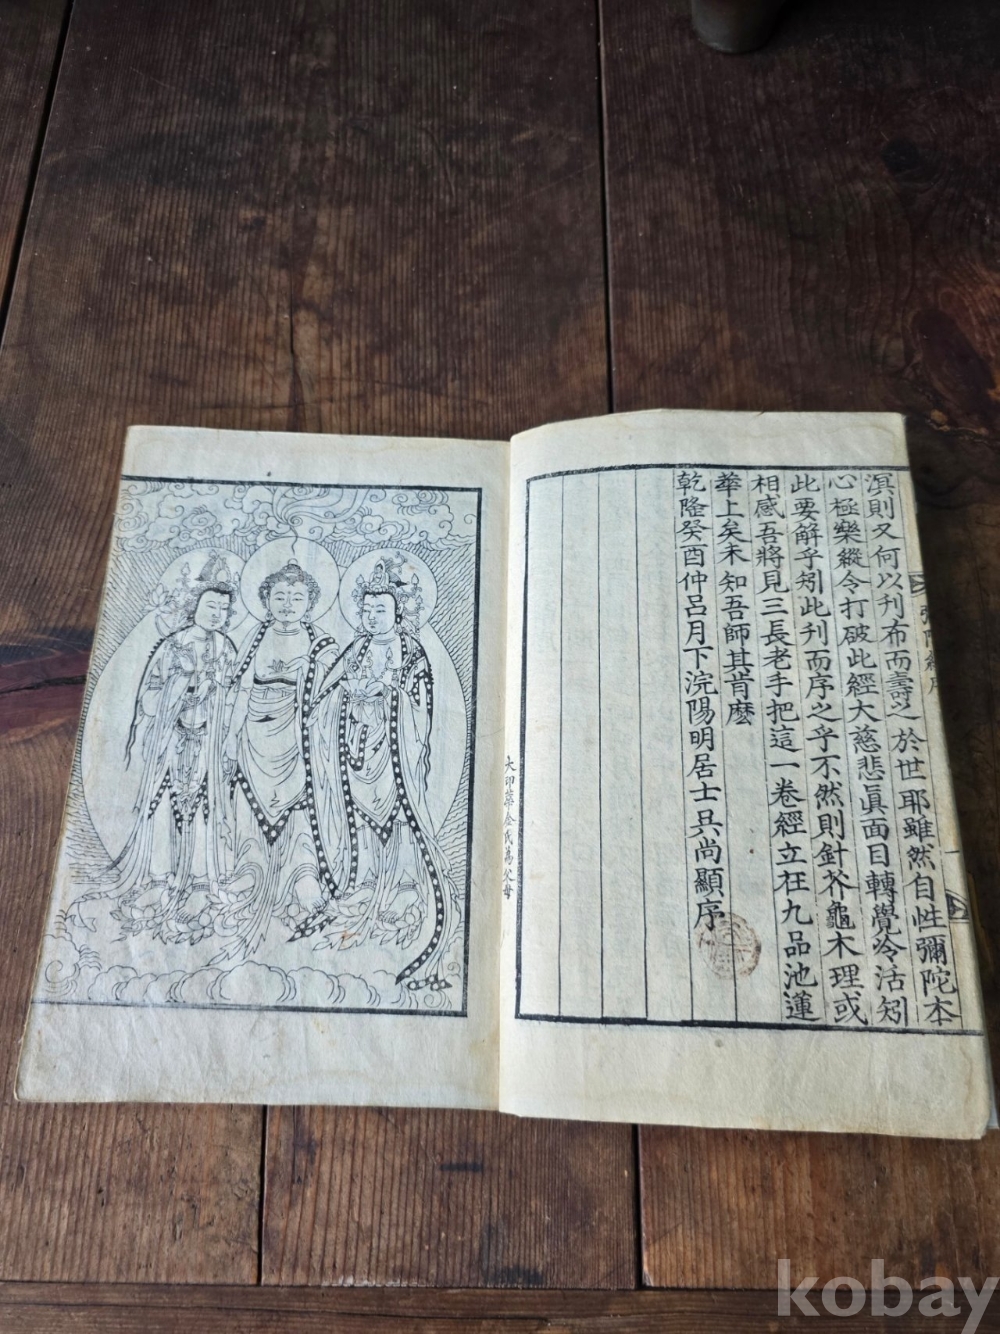 溟則又何以刋布而壽之於世耶雖然自性彌陀本
心極樂縱令打破此經大慈悲眞面目轉覺冷活矧
此要解乎矧此刋而序之乎不然則針芥龜木理或
相感吾將見三長老手把這一卷經立枉九品池蓮
華上矣未知吾師其肯麽
乾隆癸酉仲呂月下浣陽明居士具尚顯序
彌陀經序
一
大印華金氏萬父母
kobay